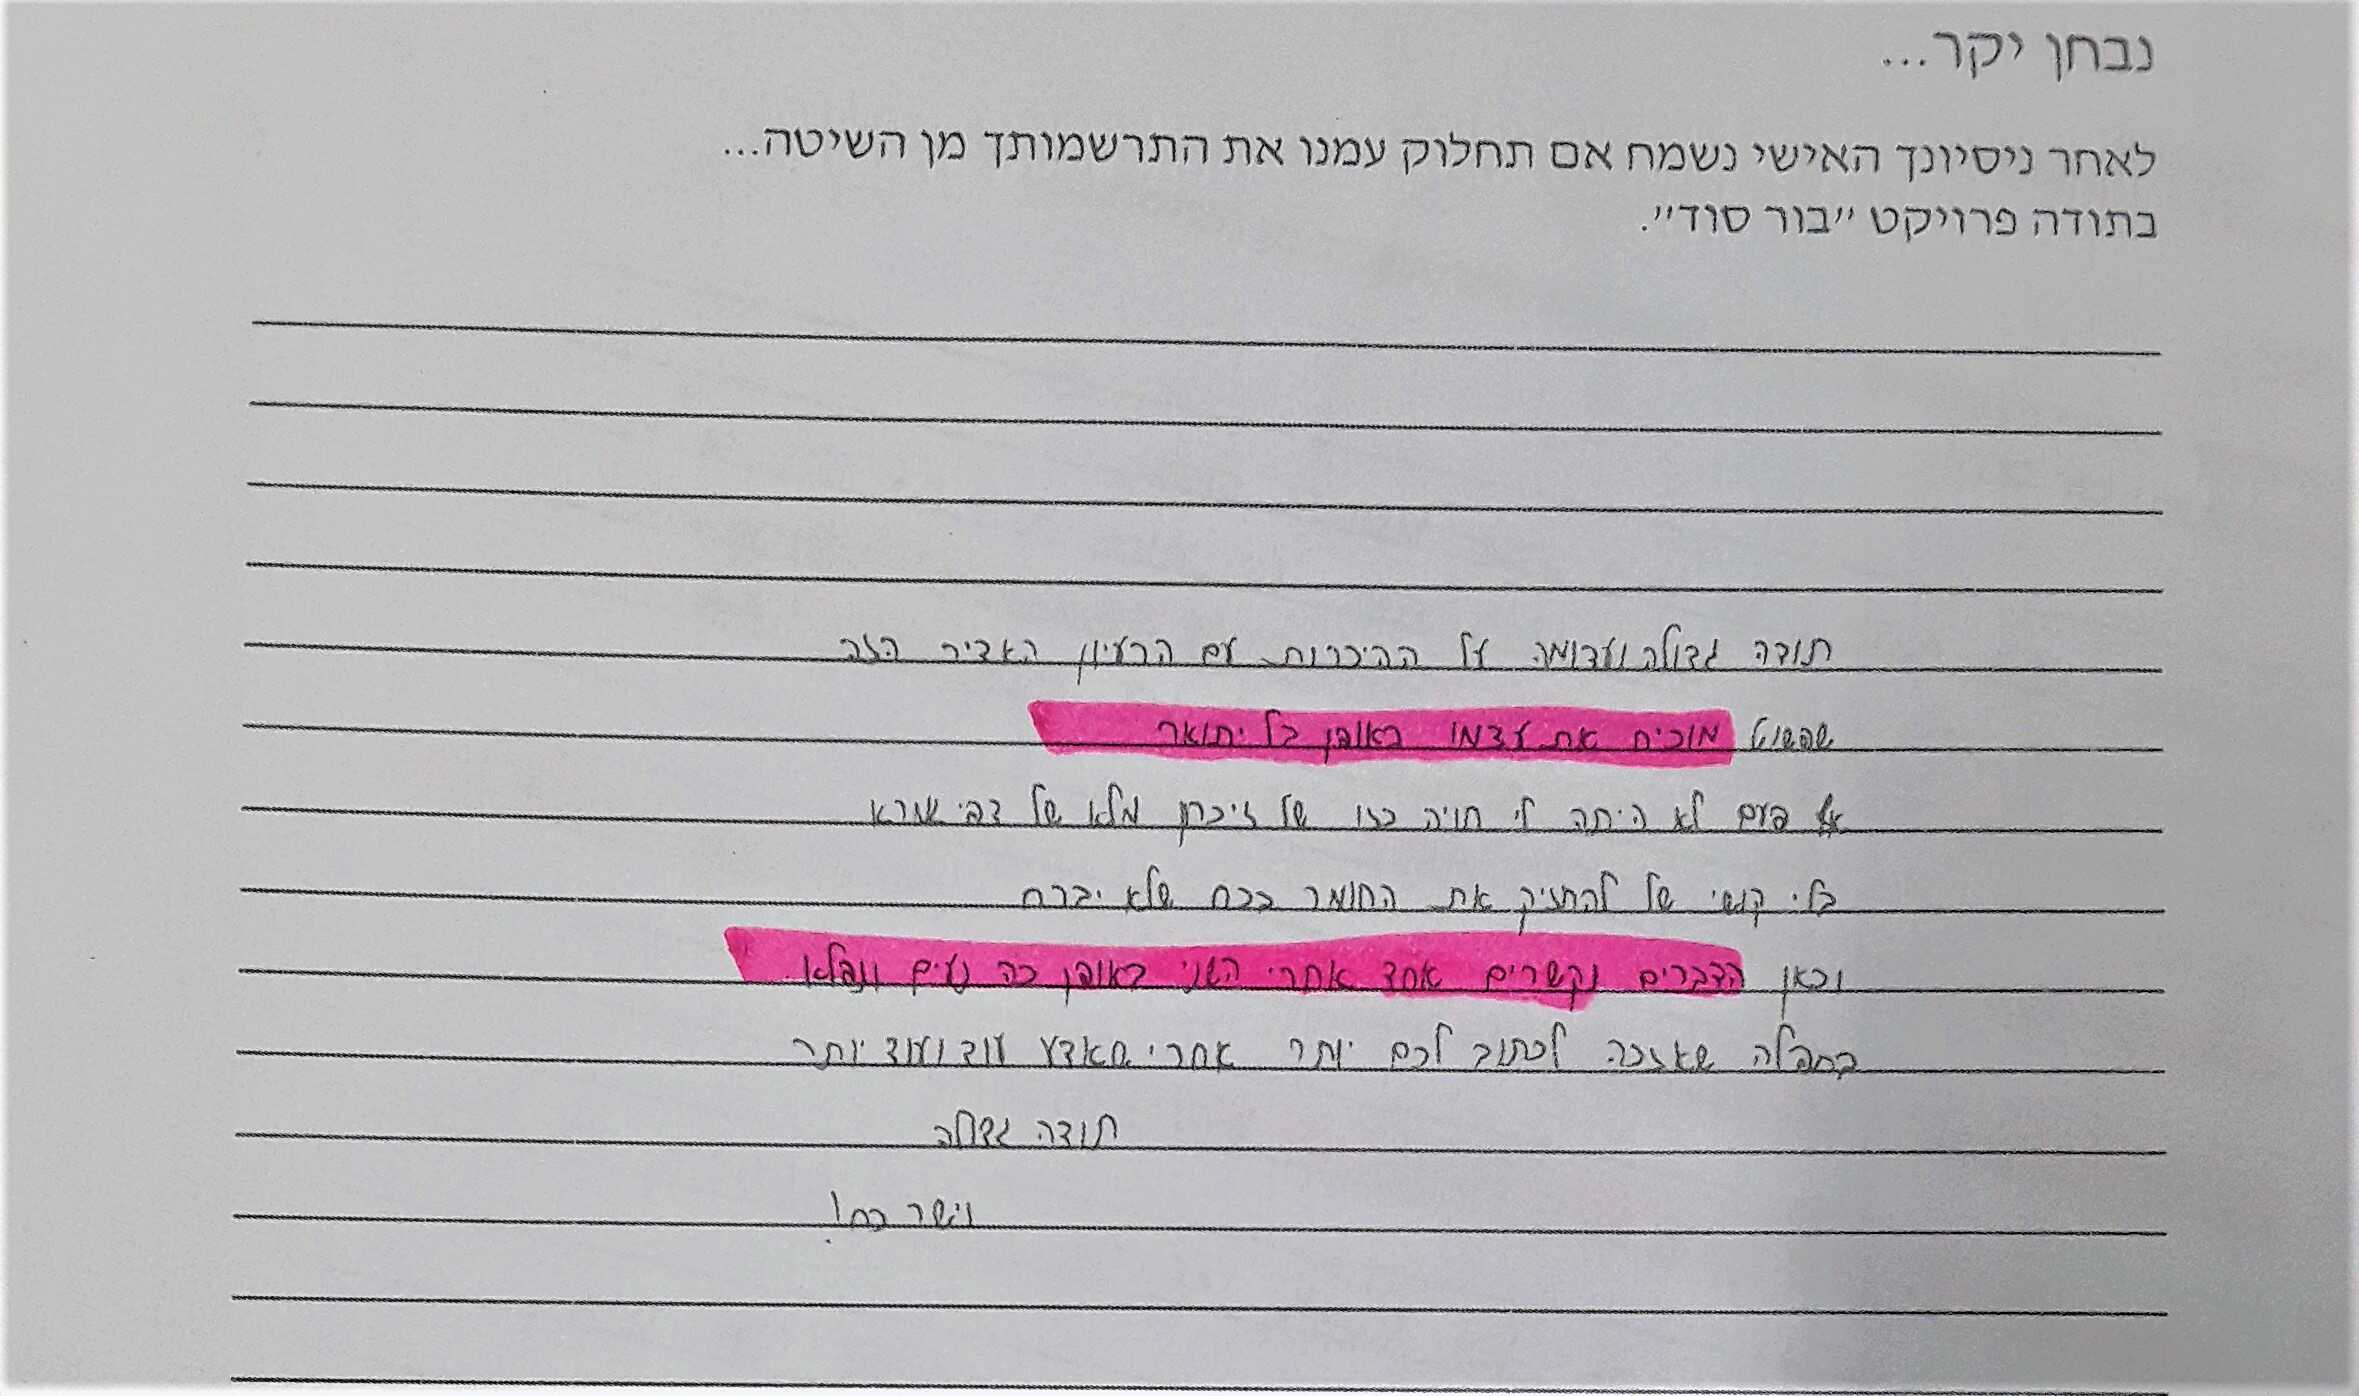 נבחן יקר...
לאחר ניסיונך האישי נשמח אם תחלוק עמנו את התרשמותך מן השיטה...
בתודה פרויקט "בור סוד".
תודה גדולה ועצומה על ההיכרות עם הרעיון האדיר הזה
שפשוט מוכיח את עצמו באופן בל יתואר
אף פעם לא היתה לי חויה כזו של זיכרון מלא של דפי גמרא
בלי קושי של להחזיק את החומר בכח שלא יברח
וכאן הדברים נקשרים אחד אחרי השני באופן כה נעים ונפלא
בתפלה שאזכה לכתוב לכם יותר אחרי שאדע עוד ועוד יותר
תודה גדולה
ויישר כח!